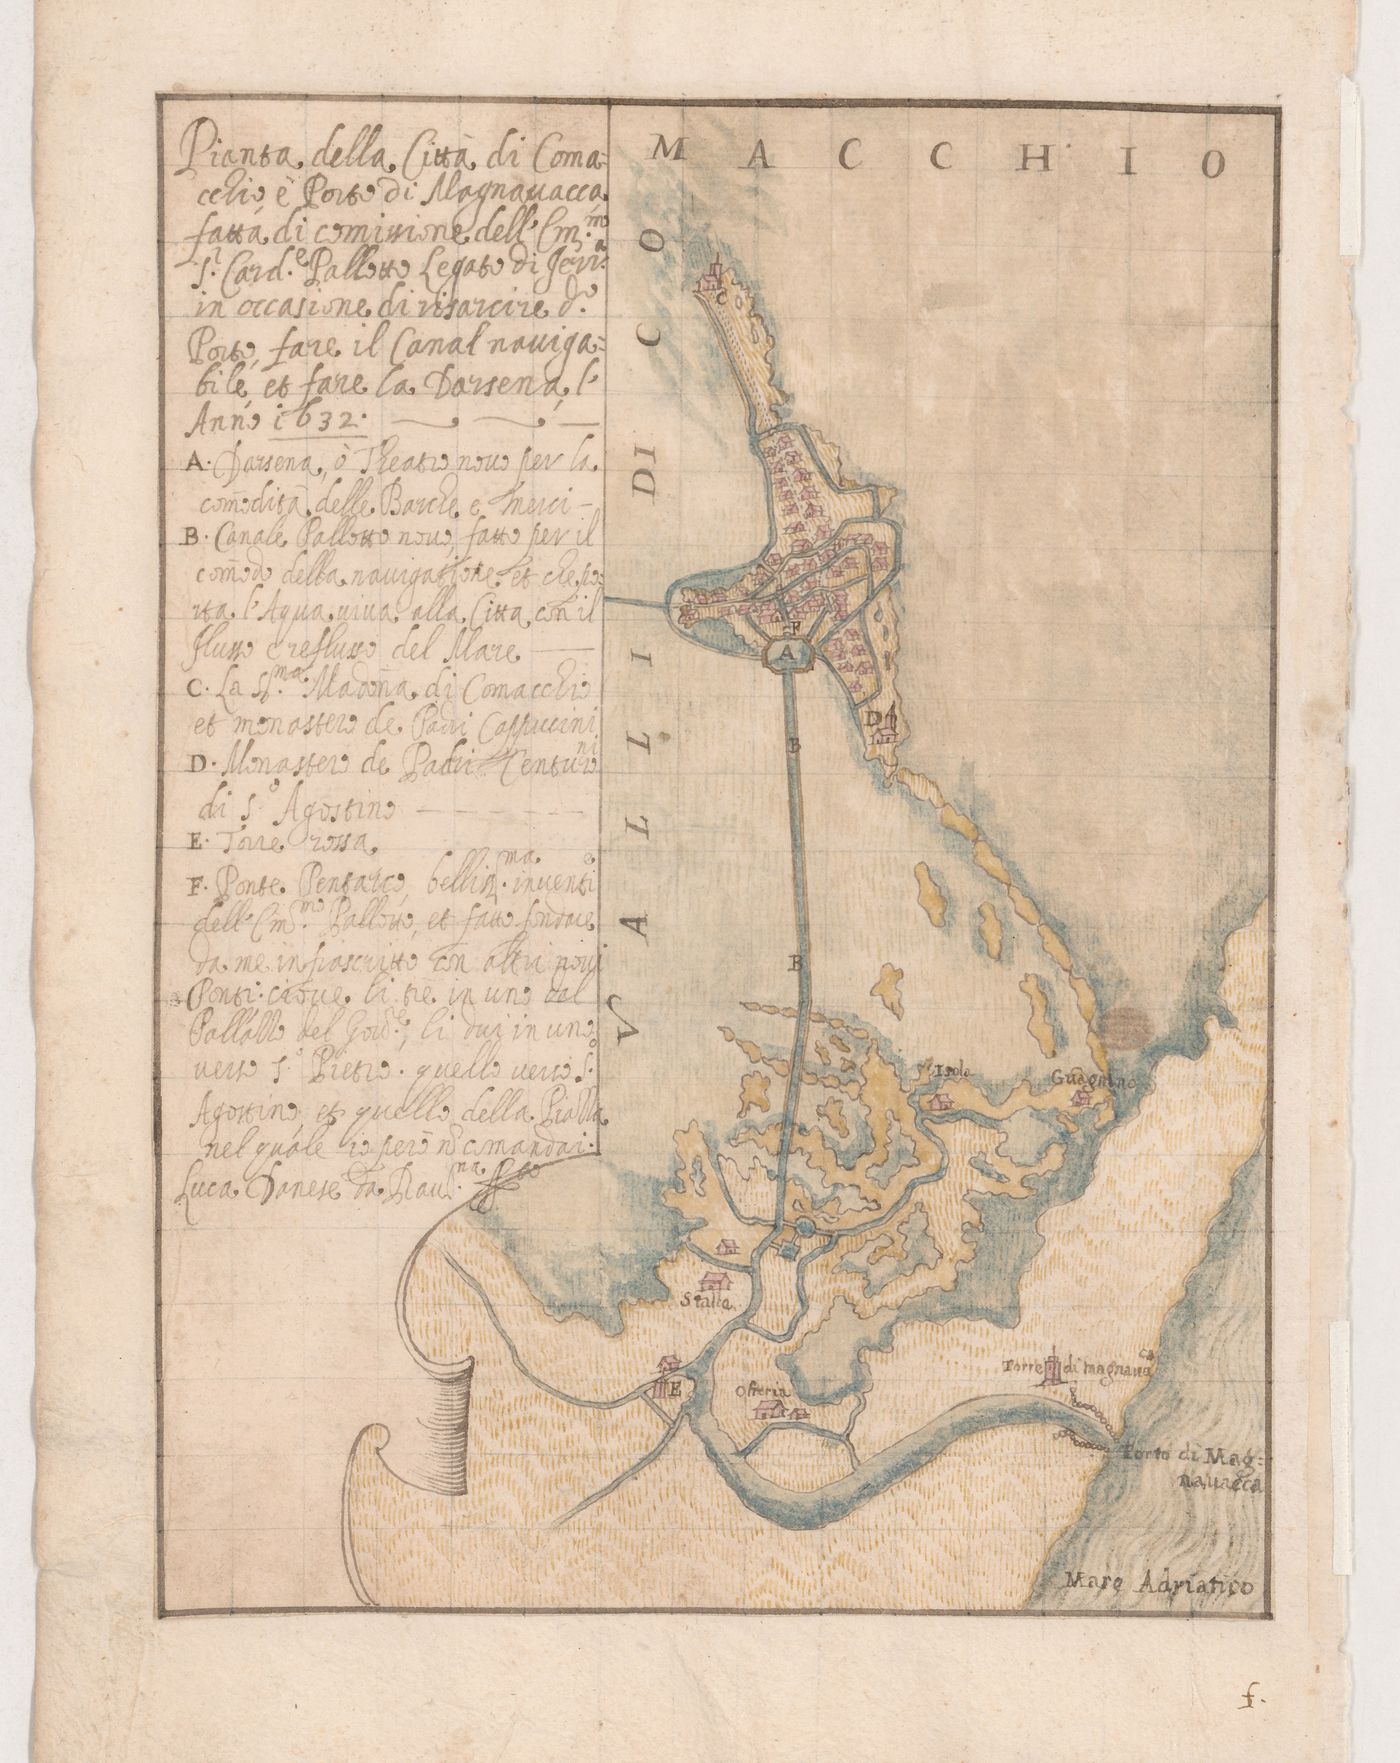 Pianta della Città di Coma=
cchio è Porto di Magnauacca
fatta di comissione dell' Em.mo
S.r Card.e Pallotto Legato di Ferr.a
in occasione di risarcire d.o
Porto, fare il Canal nauiga=
bile, et fare la Darsena, l'
Anno 1632.
A. Darsena, ò Theatro nouo per la
comodità delle Barche e Merci
B. Canale Pallotto nouo, fatto per il
comodo della nauigatione et che po=
rta l'Aqua uiua alla Città con il
flusso e reflusso del Mare
C. La S.ma Madona di Comacchio
et monastero de Padri Cappuccini
D. Monastero de Padri
di S.o Agostino
E. Torre rossa
F. Ponte Pentarco, bellis.ma
dell' Em.mo Pallotto, et fatto fondare
da me infrascritto con altri noui
Ponti. li tre in uno dal
Pallazzo del li dui in uno
verso S.o Pietro. quello verso S.o
Agostino, et quello della Piazza
nel quale io però no comandai.
Luca Danese da Rau.na
VALLI DI COMACCHIO
C
F
A
D
B
B
Isola
Guagnino
Stalla
E
Osteria
Torre di magnaua
ca
Porto di Mag=
nauacca
Mare Adriatico
f.